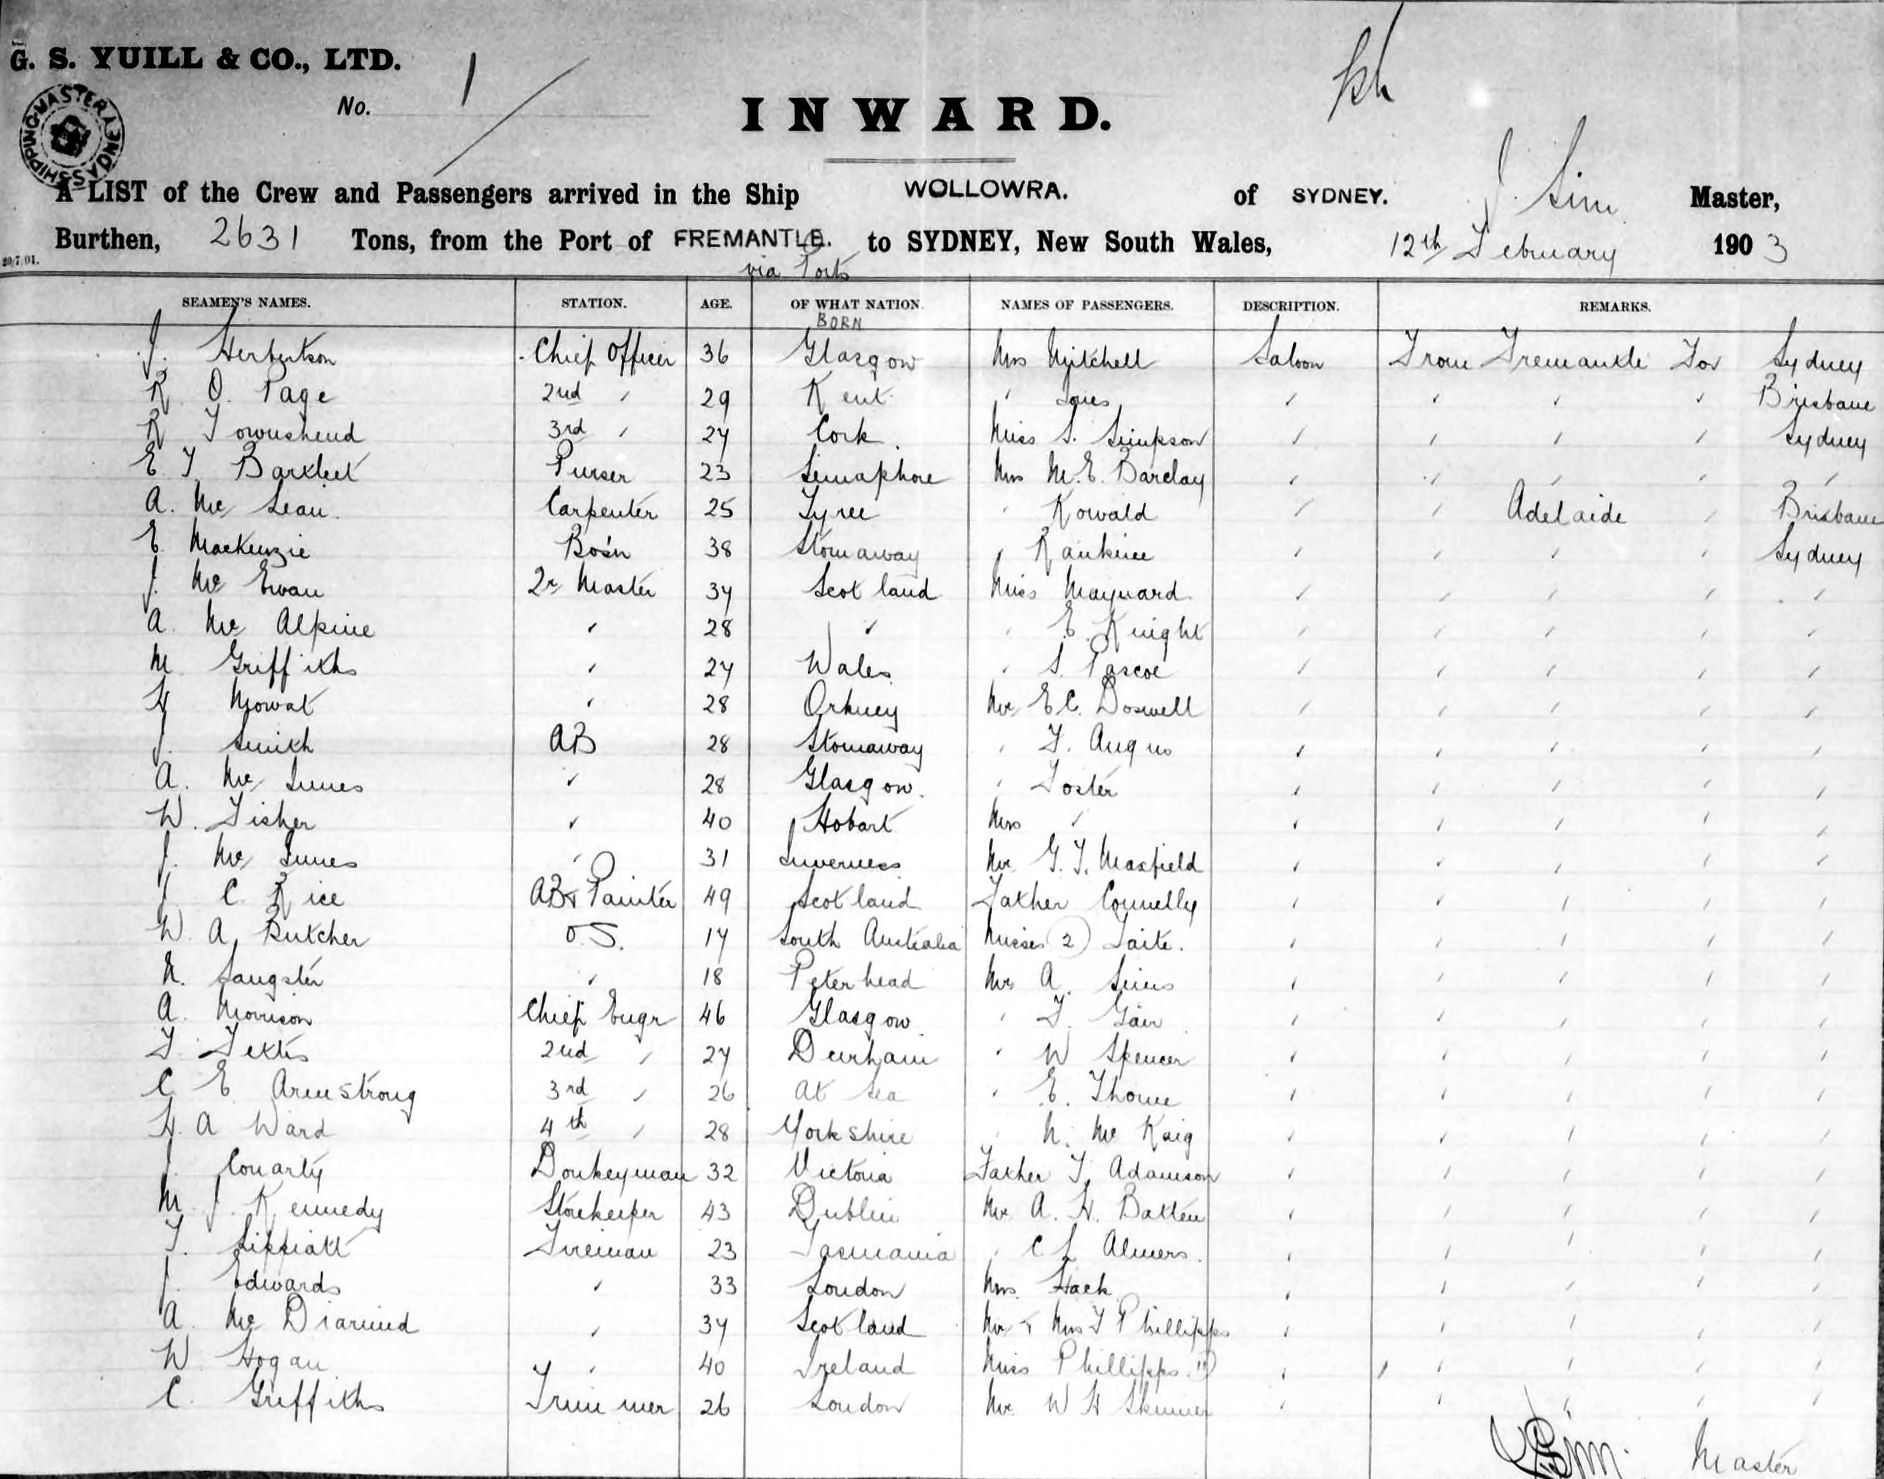 G. S. YUILL & CO., LTD.
No. 1
INWARD.
SHIPPING MASTER SYDNEY
A LIST of the Crew and Passengers arrived in the Ship WOLLOWRA. of SYDNEY. J. Sim Master,
Burthen, 2631 Tons, from the Port of FREMANTLE. to SYDNEY, New South Wales, 12th February 1903
via Ports
20/7/01.
SEAMEN'S NAMES. STATION. AGE. OF WHAT NATION. NAMES OF PASSENGERS. DESCRIPTION. REMARKS.
BORN
J. Herbertson Chief Officer 36 Glasgow Mrs Mitchell Saloon From Fremantle For Sydney
R. O. Page 2nd " 29 Kent " " " " " Brisbane
R Townshend 3rd " 27 Cork Miss S. Simpson " " " " Sydney
E T. Bartlett Purser 23 Semaphore Mrs M. E. Barclay " " " " "
A. Mc Lean Carpenter 25 Tyree " Kowald " " Adelaide " Brisbane
E Mackenzie Bos'n 38 Stornaway " Rankine " " " " Sydney
J. Mc Ewan Qr Master 37 Scotland Miss Maynard " " " " "
A. Mc Alpine " 28 " " E. Knight " " " " "
M Griffiths " 27 Wales " S. Pascoe " " " " "
H Mowat " 28 Orkney Mr E C. Doswell " " " " "
J. Smith AB 28 Stornaway " F. Angus " " " " "
A. Mc Innes " 28 Glasgow. " Foster " " " " "
W. Fisher " 40 Hobart Mrs " " " " " "
J. Mc Innes " 31 Inverness Mr G. T. Masfield " " " " "
J C Rice AB & Painter 49 Scotland Father Connelly " " " " "
W. A. Butcher O.S. 17 South Australia Misses (2) Taite. " " " " "
N. Sangster " 18 Peterhead Mr A. Sims " " " " "
A. Morrison Chief Engr 46 Glasgow " F. Gair " " " " "
F. 2nd " 27 Durham " W Spencer " " " " "
C E Armstrong 3rd " 26 At Sea " E. Thorne " " " " "
H. A Ward 4th " 28 Yorkshire " N. Mc Kaig " " " " "
J. Conarty Donkeyman 32 Victoria Father T. Adamson " " " " "
M. J. Kennedy Storekeeper 43 Dublin Mr A. H. Batten " " " " "
T. Sippiatt Fireman 23 Tasmania " C L Almers. " " " " "
J. Edwards " 33 London Mrs. Hack " " " " "
A. Mc Diarmid " 37 Scotland Mr & Mrs F Phillipps " " " " "
W. Hogan " 40 Ireland Miss Phillipps " " " " "
C. Griffiths Trimmer 26 London Mr W H Skinner " " " " "
J Sim. Master